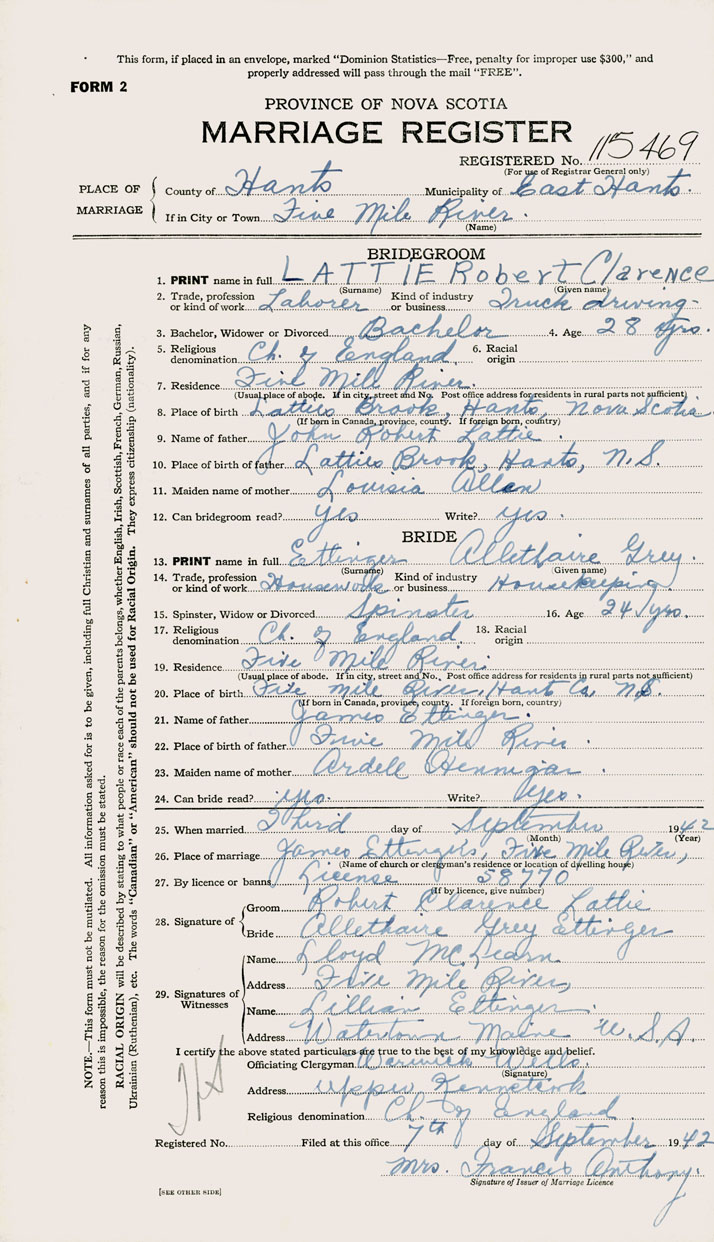 This form, if placed in an envelope, marked "Dominion Statistics—Free, penalty for improper use $300," and
properly addressed will pass through the mail "FREE".
FORM 2
PROVINCE OF NOVA SCOTIA
MARRIAGE REGISTER
REGISTERED No. 115469
(For use of Registrar General only)
PLACE OF MARRIAGE
County of Hants Municipality of East Hants.
If in City or Town Five Mile River.
(Name)
BRIDEGROOM
1. PRINT name in full LATTIE Robert Clarence
(Surname) (Given name)
2. Trade, profession or kind of work Laborer Kind of industry or business Truck driving-
3. Bachelor, Widower or Divorced Bachelor 4. Age 28 yrs.
5. Religious denomination Ch. of England 6. Racial origin
7. Residence Five Mile River.
(Usual place of abode. If in city, street and No. Post office address for residents in rural parts not sufficient)
8. Place of birth Latties Brook, Hants, Nova Scotia.
(If born in Canada, province, county. If foreign born, country)
9. Name of father John Robert Lattie.
10. Place of birth of father Latties Brook, Hants, N.S.
11. Maiden name of mother Louisia Allan
12. Can bridegroom read? Yes Write? yes.
BRIDE
13. PRINT name in full Ettinger Allethaire Grey.
(Surname) (Given name)
14. Trade, profession or kind of work Housework Kind of industry or business Housekeeping.
15. Spinster, Widow or Divorced Spinster 16. Age 24 yrs.
17. Religious denomination Ch. of England 18. Racial origin
19. Residence Five Mile River.
(Usual place of abode. If in city, street and No. Post office address for residents in rural parts not sufficient)
20. Place of birth Five mile River, Hants Co, N.S.
(If born in Canada, province, county. If foreign born, country)
21. Name of father James Ettinger.
22. Place of birth of father Five Mile River.
23. Maiden name of mother Ardell Hennigar.
24. Can bride read? yes. Write? Yes.
25. When married Third day of September 1942
(Month) (Year)
26. Place of marriage James Ettinger's, Five Mile River,
(Name of church or clergyman's residence or location of dwelling house)
27. By licence or banns License 58770
(If by licence, give number)
28. Signature of
Groom Robert Clarence Lattie
Bride Allethaire Grey Ettinger
29. Signatures of Witnesses
Name Lloyd McLearn
Address Five Mile River,
Name Lillian Ettinger.
Address Watertown Maine U.S.A.
I certify the above stated particulars are true to the best of my knowledge and belief.
Officiating Clergyman Warwick Wells.
(Signature)
Address Upper Kennetcook
Religious denomination Ch. of England.
Registered No. Filed at this office 7th day of September 1942
Mrs. Francis Anthony.
Signature of Issuer of Marriage Licence
[SEE OTHER SIDE]
NOTE.—This form must not be mutilated. All information asked for is to be given, including full Christian and surnames of all parties, and if for any
reason this is impossible, the reason for the omission must be stated.
RACIAL ORIGIN will be described by stating to what people or race each of the parents belongs, whether English, Irish, Scottish, French, German, Russian,
Ukrainian (Ruthenian), etc. The words "Canadian" or "American" should not be used for Racial Origin. They express citizenship (nationality).